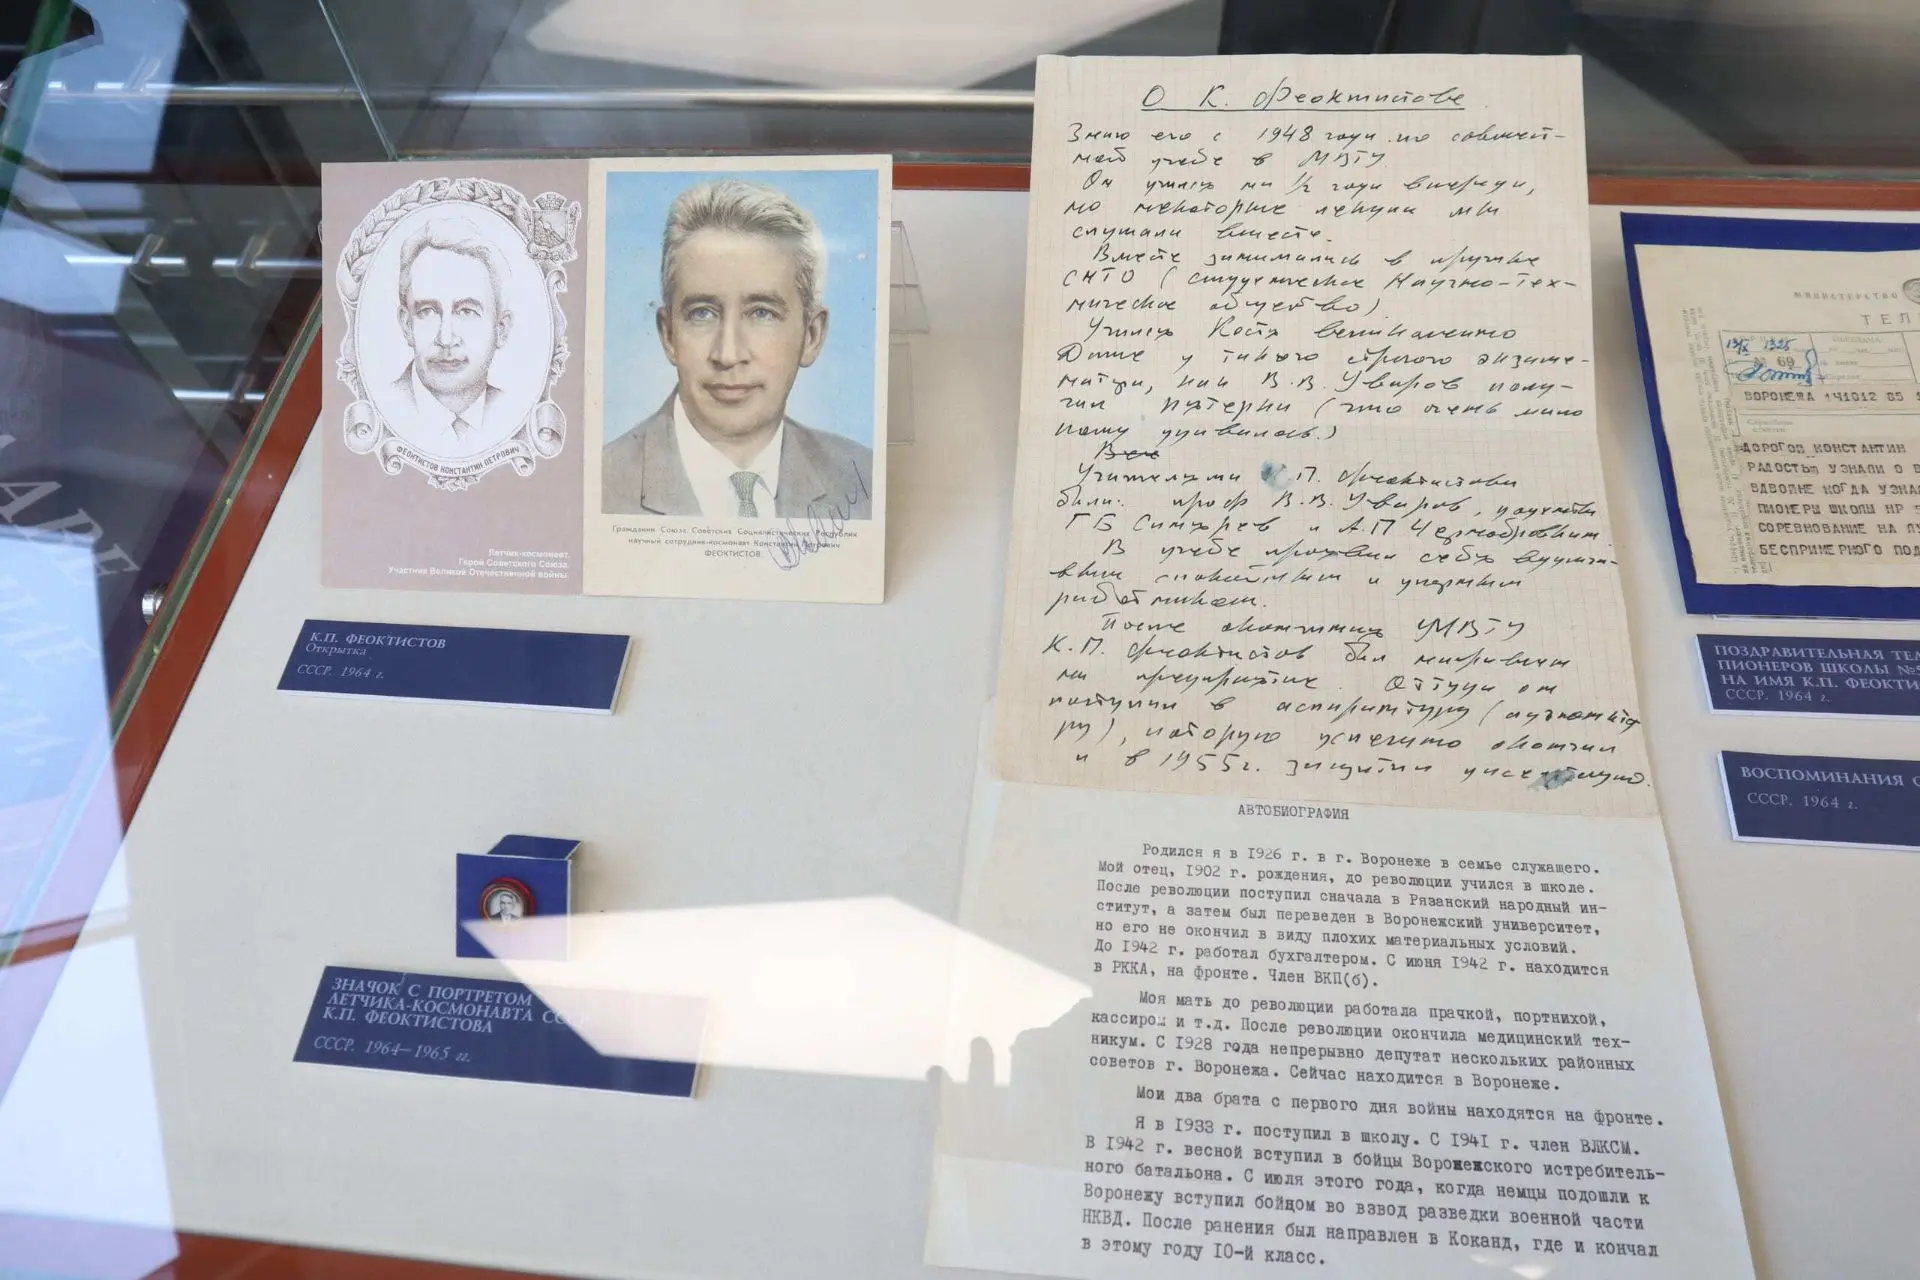 ФЕОКТИСТОВ КОНСТАНТИН ПЕТРОВИЧ
Летчик-космонавт.
Герой Советского Союза.
Участник Великой Отечественной войны.
Гражданин Союза Советских Социалистических Республик
научный сотрудник-космонавт Константин Петрович
ФЕОКТИСТОВ
К.П. ФЕОКТИСТОВ
Открытка
СССР. 1964 г.
ЗНАЧОК С ПОРТРЕТОМ
ЛЕТЧИКА-КОСМОНАВТА СССР
К.П. ФЕОКТИСТОВА
СССР. 1964–1965 гг.
О К. Феоктистове
Знаю его с 1948 года по совмест-
ной учебе в МВТУ
Он учился на 1/2 года впереди,
но некоторые лекции мы
слушали вместе.
Вместе занимались в кружке
СНТО (студенческое Научно-тех-
ническое общество)
Учился Костя великолепно
Даже у такого строгого экзаме-
натора, как В.В. Уваров полу-
чил пятерки (что очень мало
кому удавалось.)
Учителями П. Феоктистова
были: проф В.В. Уваров, доценты
Г Б Синярев и А.П Чернобровкин
В учебе проявил себя вдумчи-
вым спокойным и упорным
работником.
После окончания МВТУ
К.П. Феоктистов был направлен
на предприятие. Оттуда он
поступил в аспирантуру (адъюнкту
ру), которую успешно окончил
и в 1955г. защитил диссертацию.
АВТОБИОГРАФИЯ
Родился я в 1926 г. в г. Воронеже в семье служащего.
Мой отец, 1902 г. рождения, до революции учился в школе.
После революции поступил сначала в Рязанский народный ин-
ститут, а затем был переведен в Воронежский университет,
но его не окончил в виду плохих материальных условий.
До 1942 г. работал бухгалтером. С июня 1942 г. находится
в РККА, на фронте. Член ВКП(б).
Моя мать до революции работала прачкой, портнихой,
кассиром и т.д. После революции окончила медицинский тех-
никум. С 1928 года непрерывно депутат нескольких районных
советов г. Воронежа. Сейчас находится в Воронеже.
Мои два брата с первого дня войны находятся на фронте.
Я в 1933 г. поступил в школу. С 1941 г. член ВЛКСМ.
В 1942 г. весной вступил в бойцы Воронежского истребитель-
ного батальона. С июля этого года, когда немцы подошли к
Воронежу вступил бойцом во взвод разведки военной части
НКВД. После ранения был направлен в Коканд, где и кончал
в этому году 10-й класс.
МИНИСТЕРСТВО
ТЕЛ
13/X 1325
№ 69
ВОРОНЕЖА 141012 85 1
ДОРОГОЙ КОНСТАНТИН
РАДОСТЬЮ УЗНАЛИ О В
ВДВОЙНЕ КОГДА УЗНА
ПИОНЕРЫ ШКОЛЫ НР 5
СОРЕВНОВАНИЕ НА ЛУ
БЕСПРИМЕРНОГО ПОД
ПОЗДРАВИТЕЛЬНАЯ ТЕЛ
ПИОНЕРОВ ШКОЛЫ №5
НА ИМЯ К.П. ФЕОКТИ
СССР. 1964 г.
ВОСПОМИНАНИЯ С
СССР. 1964 г.